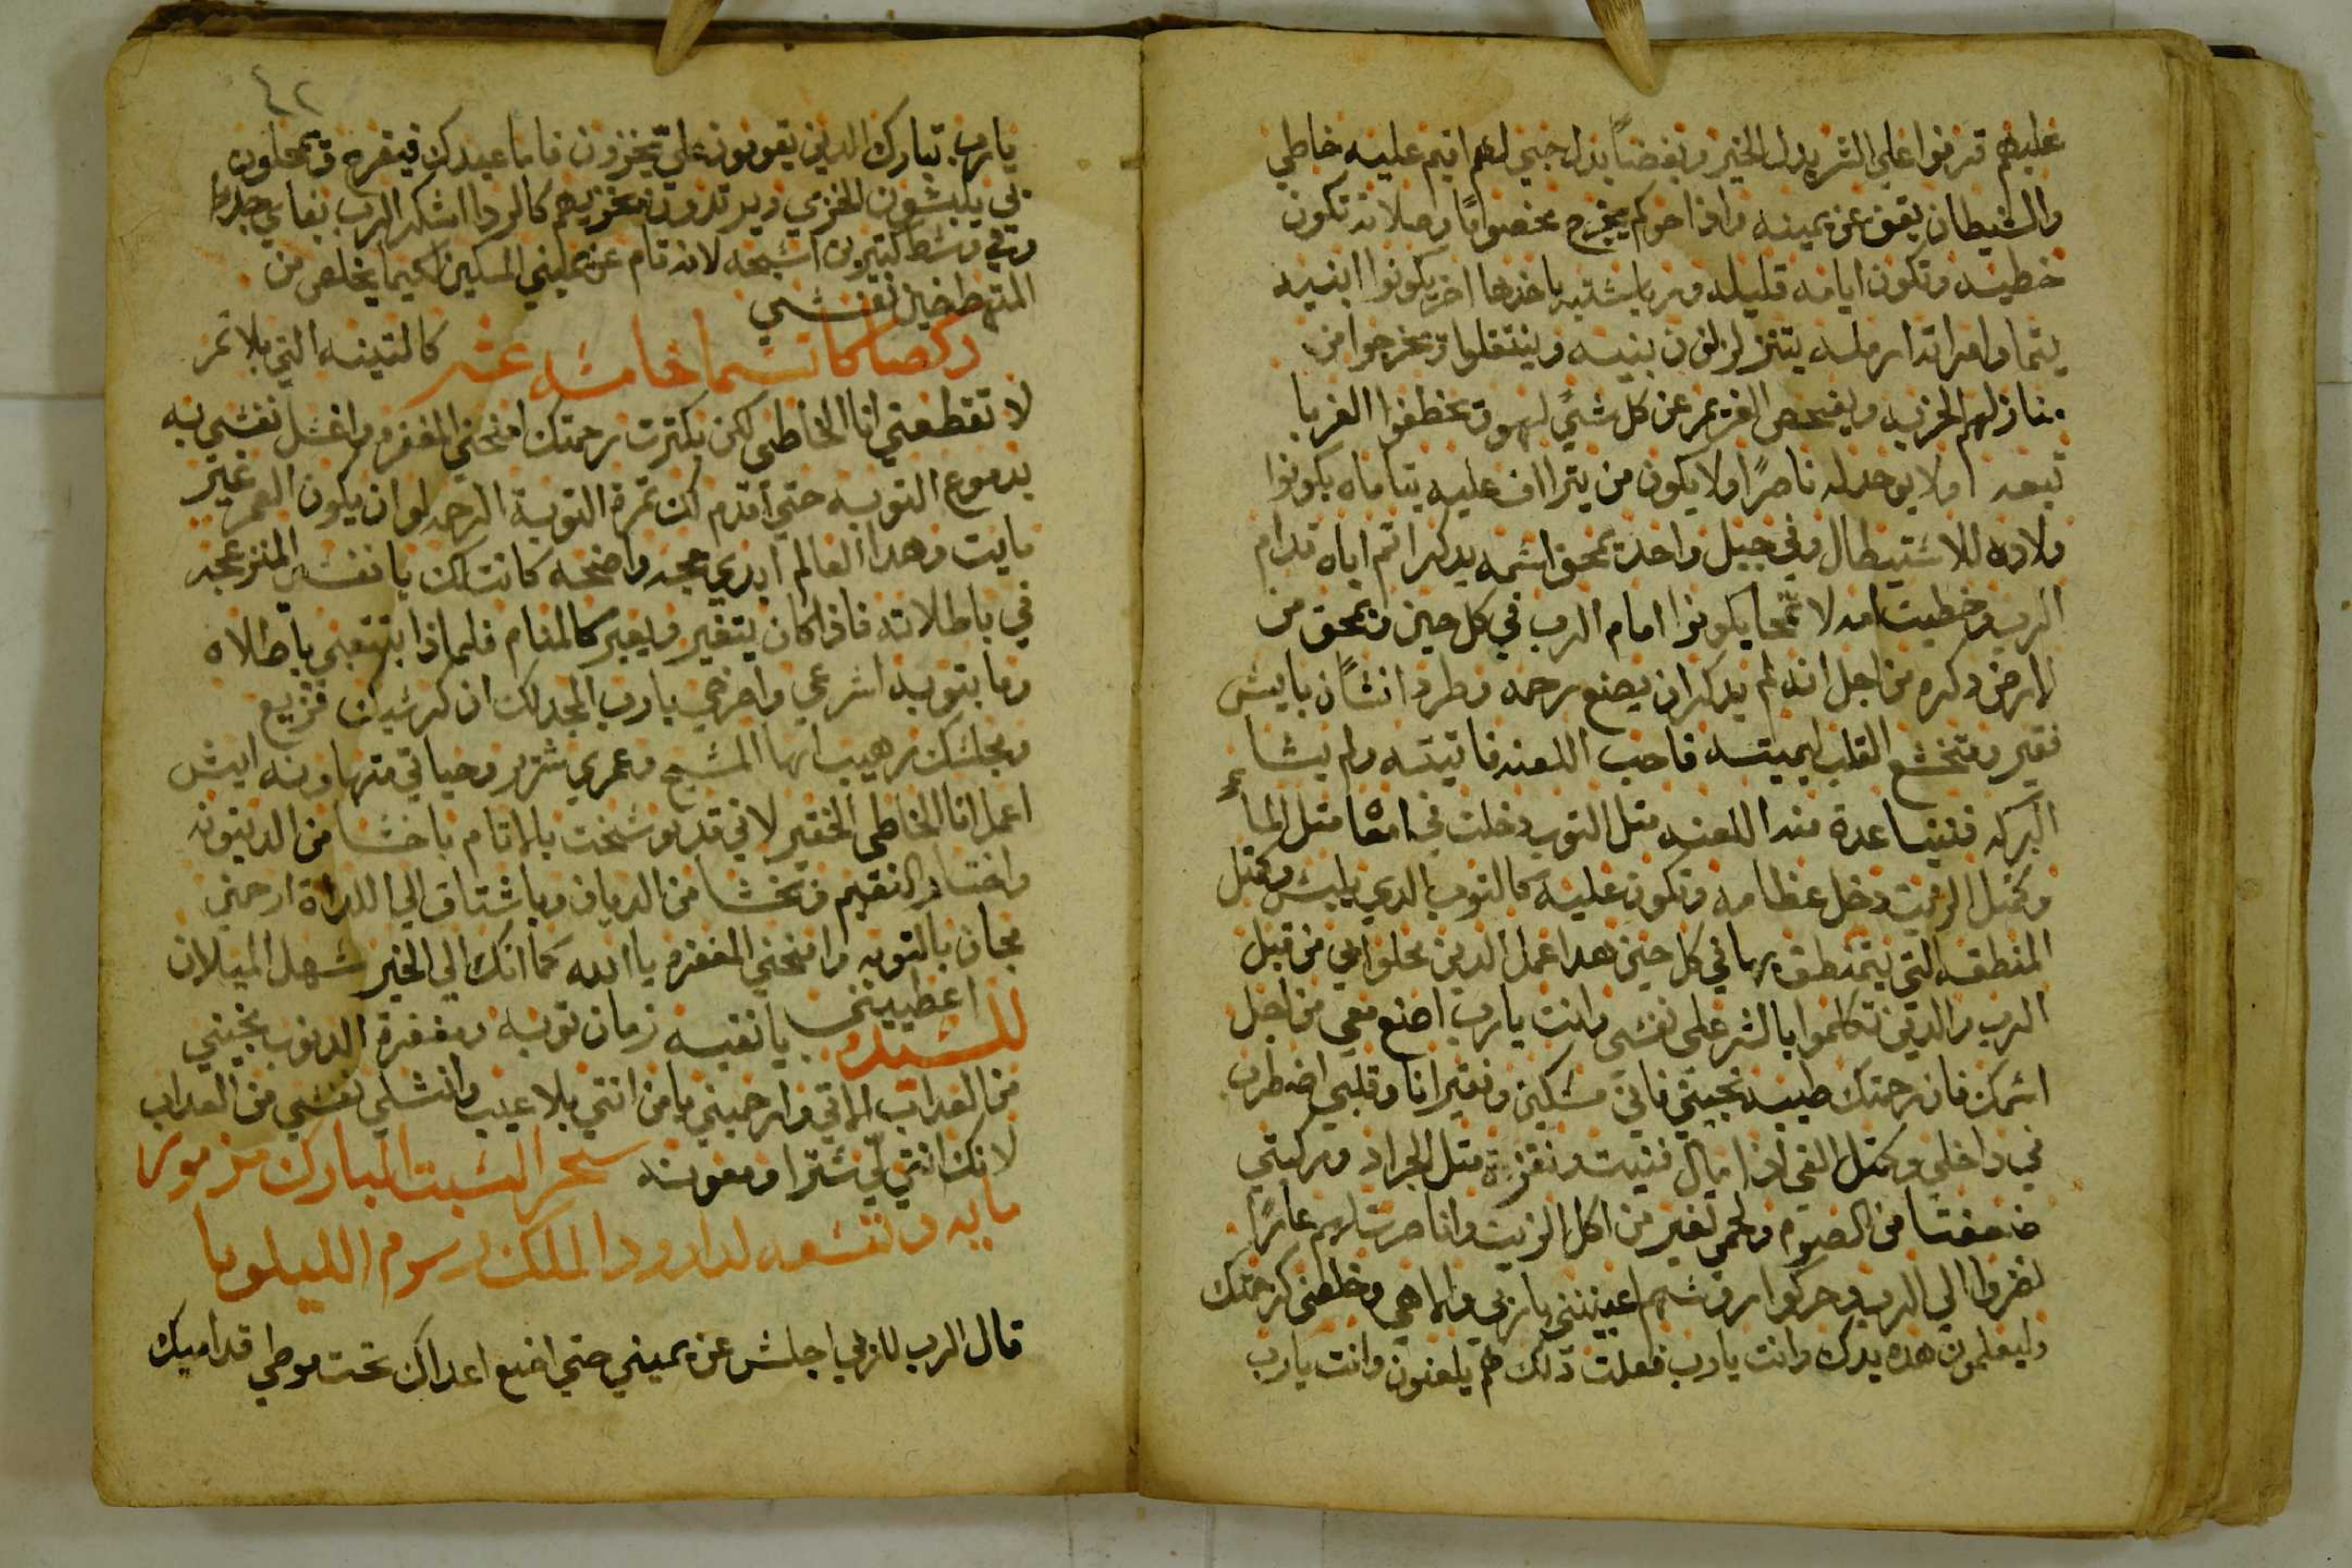 عليهم قرنوا علي الشر بدل الخير وبغضاً بدل حبي لهم اقيم عليه خاطي
والشيطان يقف عن يمينه واذا حوكم يخرج مخصوماً وصلاته تكون
خطيه وتكون ايامه قليله ورياسته ياخدها اخر يكونوا ابنيه
يتما وامراته ارمله يتزلزلون بنيه وينتقلوا ويخرجوا من
منازلهم الخربه ويفحص الغريم عن كل شي لهو ويخطفوا الغربا
تبعه اولا يوجد له ناصرًا ولا يكون من يتراف عليه يتاماه يكونوا
ولاده للاستيطال وفي جيل واحد يمحق اسمه يدكر اتم اباه قدام
الرب وخطيت امه لا تمحا يكونوا امام الرب في كل حين ويمحق من
الارض دكره من اجل انه لم يدكر ان يصنع رحمه وطرد انسًان بايس
فقير ومتخشع القلب ليميته فاحب اللعنه فاتيته ولم يشا
البركه فتتباعد منه اللعنه متل التوب دخلت في امعا متل الماءِ
وكمتل الزيت دخل عظامه وتكون عليه كالتوب الدي يلبس وكمتل
المنطقه التي يتمنطق بها في كل حين هدا عمل الدين محلوا بي من قبل
الرب والدين تكلموا بالشر علي نفسي وانت يارب اصنع معي من اجل
اسمك فان رحمتك طيبه نجيني فاني مسكين وفقير انا وقلبي اضطرب
في داخلي وكمتل الفي ادا مال فنيت ونفزت متل الجراد وركبتي
ضعفتا من الصوم ولحمي تغير من اكل الزيت وانا صرت لهم عارًا
نضروا الي الرب وحركوا روسهم اعينني ياربي والاهي وخلصني كرحمتك
وليعلمون هده يدك وانت يارب فعلت دلك هم يلعنون وانت يارب
٤٢
يارب تبارك الدين يقومون علي يخزون فاما عبدك فيفرح ويمحلون
بي يلبسون الخزي ويرتدون بخزيهم كالردا اشكر الرب بفمي جداً
وفي وسط كتيرين اسبحه لانه قام عن يميني المسكين لكيما يخلص من
المتهطضين نفسي
دكصا كاتسما خامسه عشر كالتينه التي بلا تمر
لا تقطعني انا الخاطي لكن بكترت رحمتك امنحني المغفره واغسل نفسي به
بدموع التوبه حتي اقدم لك تمرة التوبة الرحمه لو ان يكون العمر غير
مايت وهدا العالم ابدي حجه واضحه كانت لك يا نفس المنزعجه
في باطلاته فاذا كان يتغير ويعبر كالمنام فلماذا بتتعبي باطلاه
وما بتوبه اسرعي واصرخي يارب المجد لك ان كرسيك فزيع
ومجلسك رهيب ايها المسيح وعمري شرير وحياتي متهاونه ايش
اعمل انا الخاطي الحقير لاني قد وسخت بالاتام باخشا من الدينونه
واختار النقيم وتخشا من الديان وباشتاق الي اللداة ارحمني
مجان بالتوبه وامنحني المغفره يا الله كما انك الي الخير سهل الميلان
للسيده اعطييني يا نقيه زمان توبه ومغفرة الدنوب نجيني
من العداب الاتي وارحميني يا من انتي بلا عيب وانشلي نفسي من العداب
لانك انتي لي ستراً ومعونه سحر السبت المبارك مزمور
مايه وتسعه لداود الملك برسوم الليلويا
قال الرب لربي اجلس عن يميني حتي اضع اعداك تحت موطي قداميك